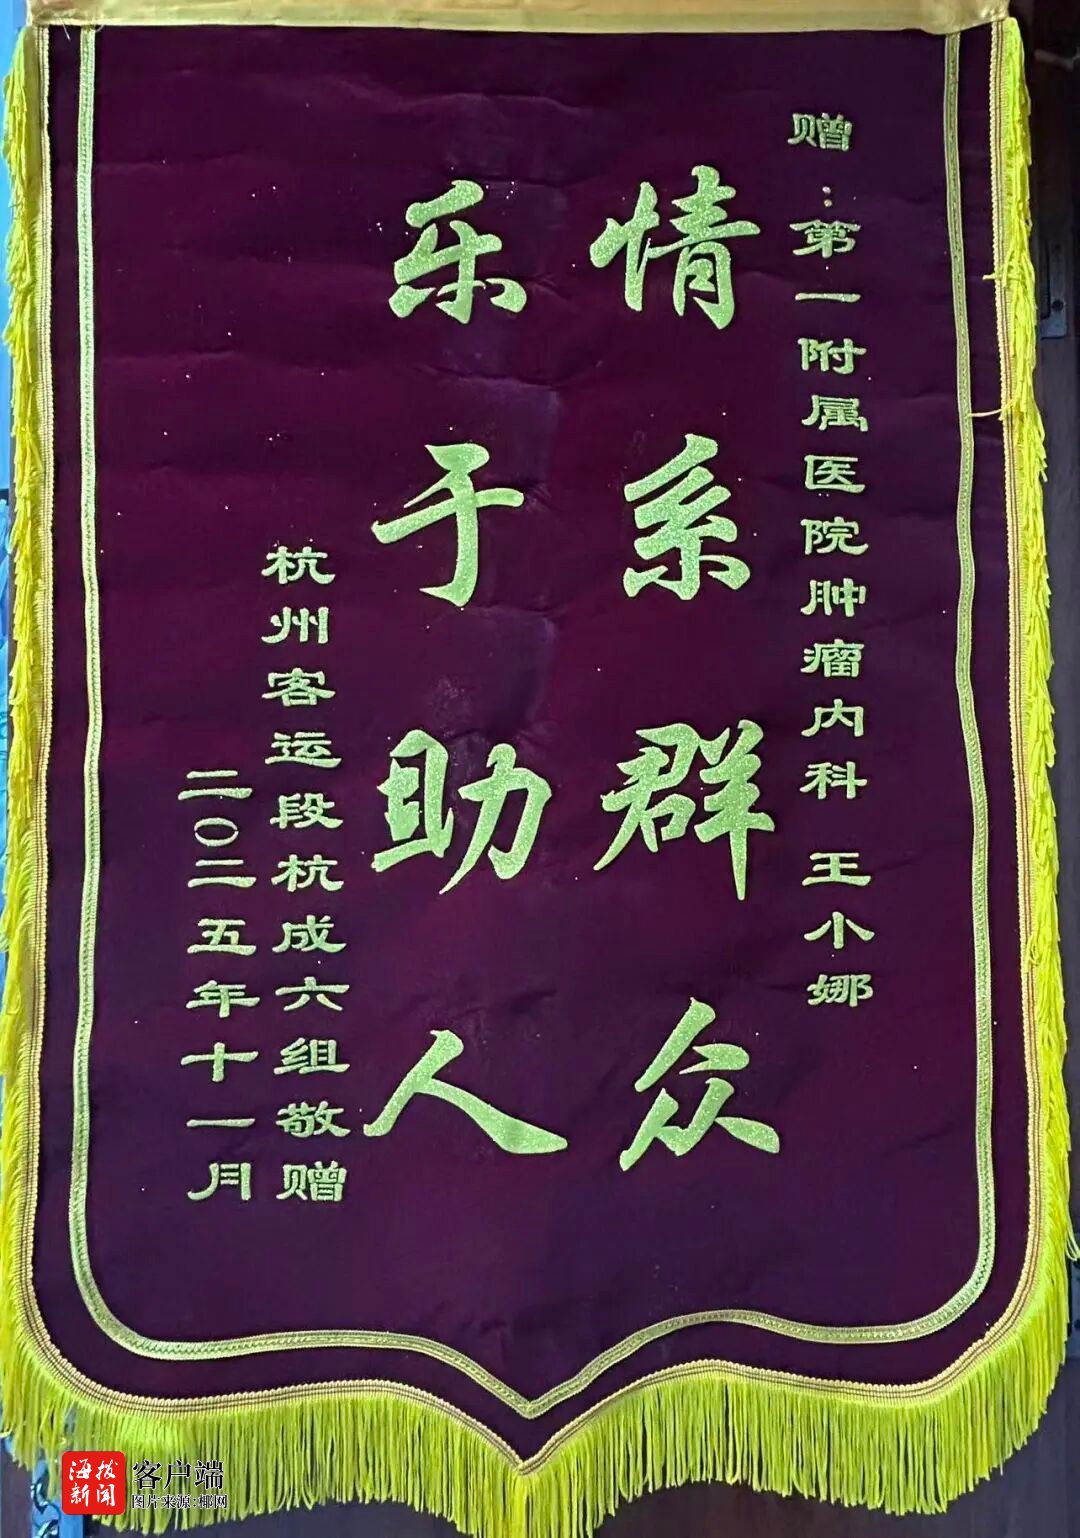 赠：第一附属医院肿瘤内科 王小娜
情系群众
乐于助人
杭州客运段杭成六组敬赠
二〇二五年十一月
海拔新闻
客户端
图片来源:椰网